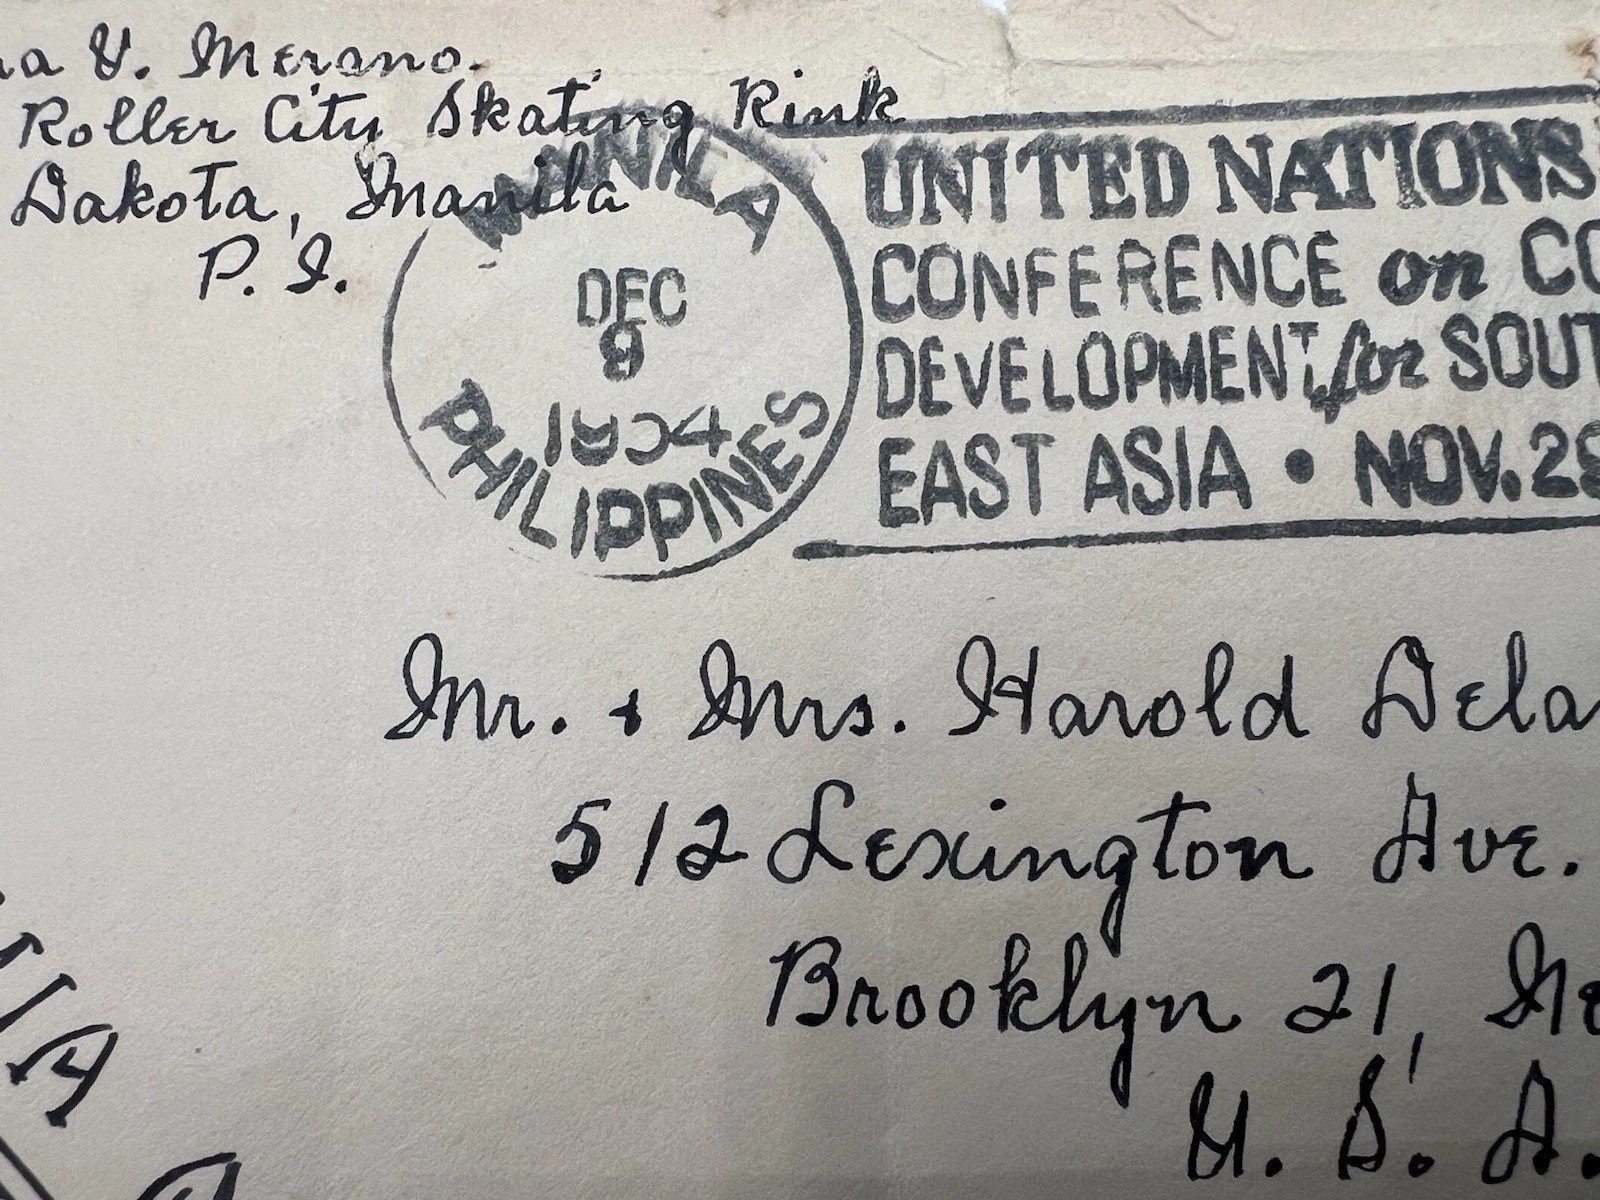 na V. Merano.
Roller City Skating Rink
Dakota, Manila
P. I.
MANILA
DEC
8
1954
PHILIPPINES
UNITED NATIONS
CONFERENCE on CO
DEVELOPMENT for SOUT
EAST ASIA • NOV. 29
Mr. & Mrs. Harold Dela
512 Lexington Ave.
Brooklyn 21, Ne
U. S. A.